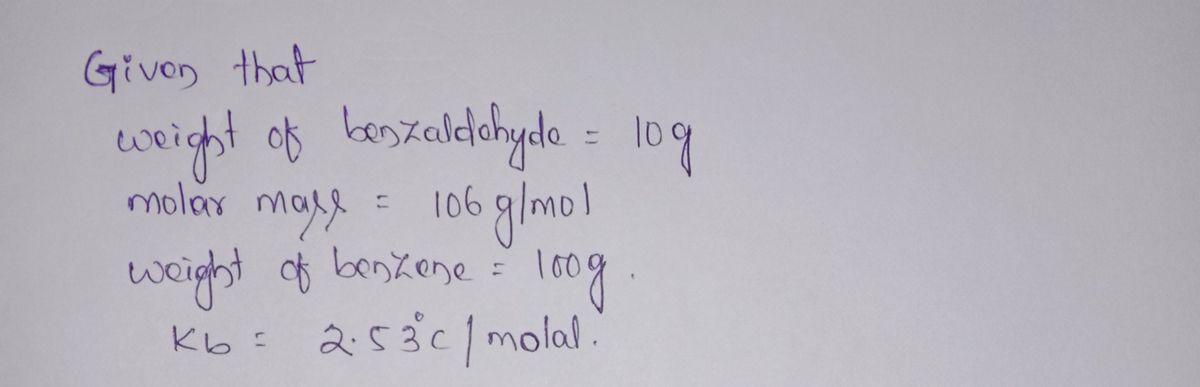 Given that
weight of benzaldehyde = 10g
molar mass = 106 g/mol
weight of benzene = 100g.
Kb = 2.53°c / molal.